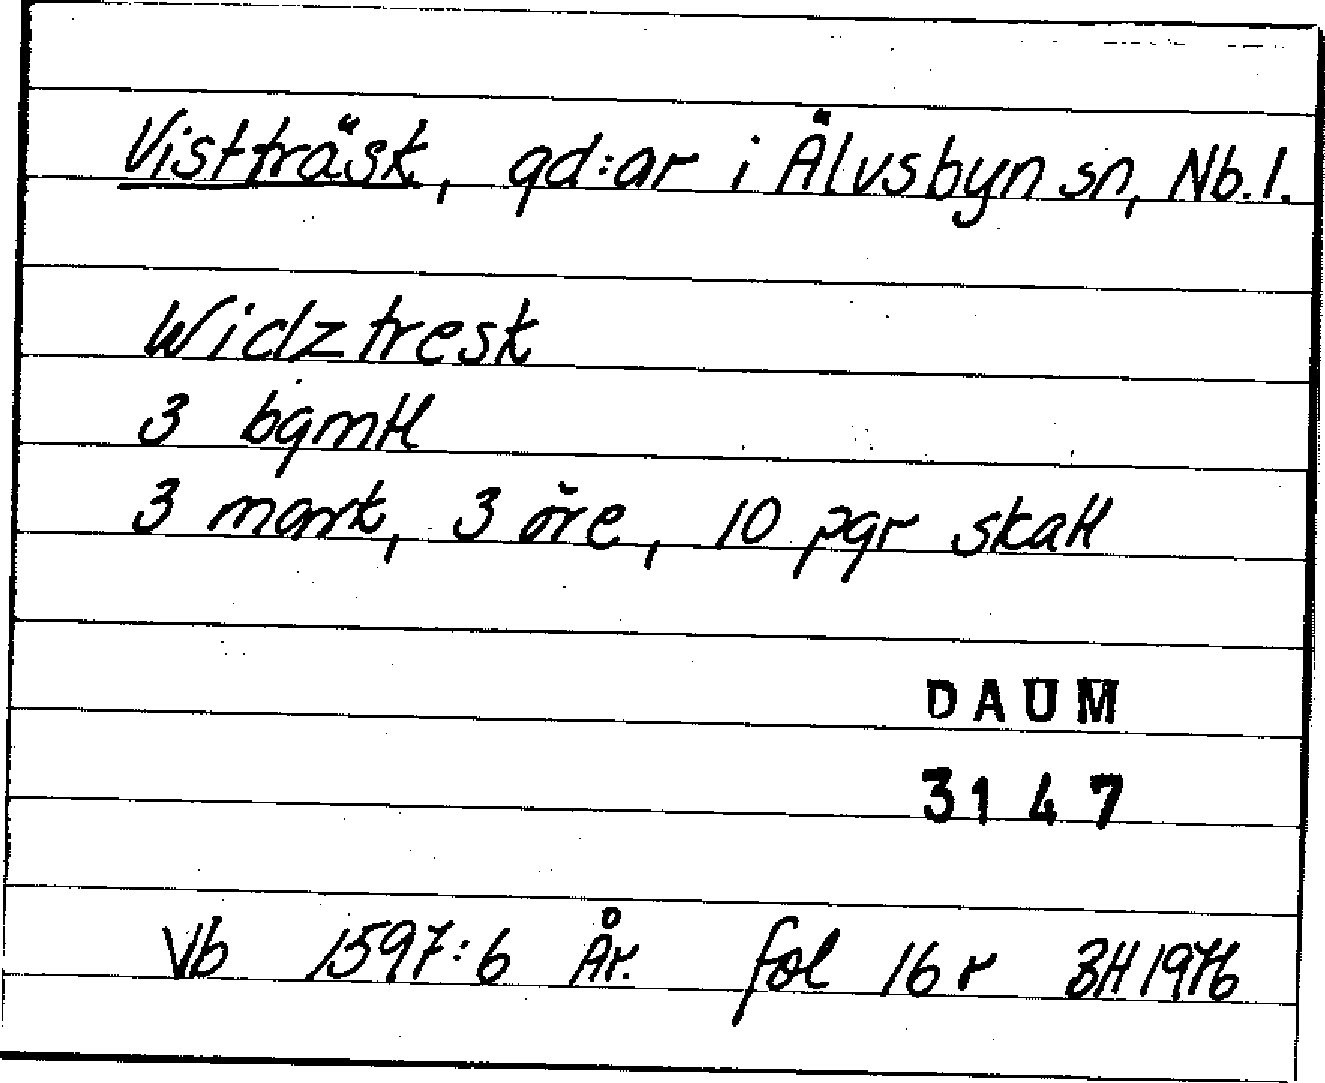 Vistträsk, gd:ar i Älvsbyn sn, Nb.l.
Widztresk
3 bgmtl
3 mark, 3 öre, 10 pgr skatt
DAUM
3147
Vb 1597:6 År. fol 16 r BH 1976